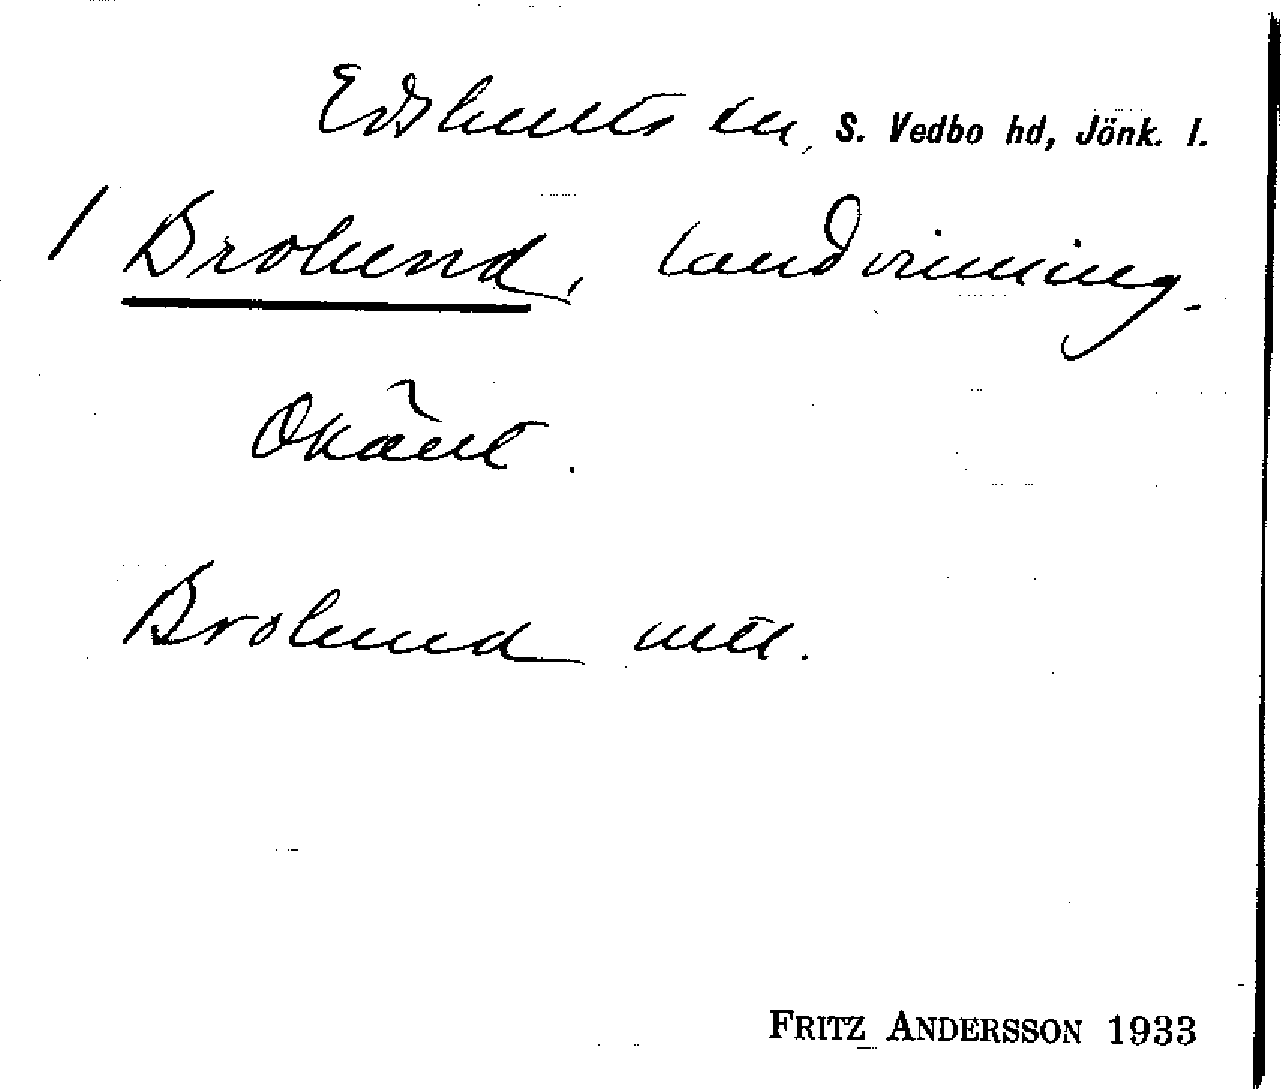 Edshults sn, S. Vedbo hd, Jönk. l.
/ Brolund, landvinning.
Okänt.
Brolund
FRITZ ANDERSSON 1933